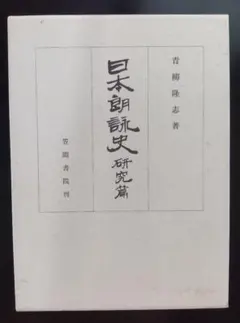 青柳隆志著
日本朗詠史 研究篇
笠間書院刊